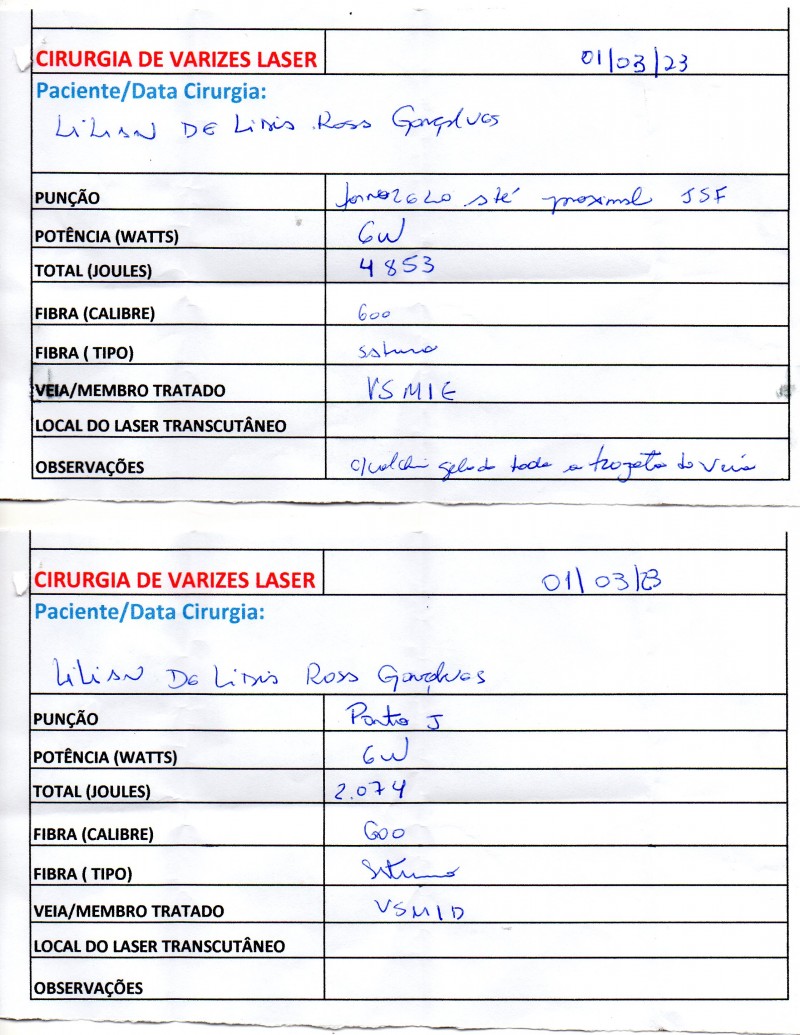 CIRURGIA DE VARIZES LASER 01/03/23
Paciente/Data Cirurgia:
Lilian De Rosa Gonçalves
PUNÇÃO tornozelo até proximal JSF
POTÊNCIA (WATTS) 6W
TOTAL (JOULES) 4853
FIBRA (CALIBRE) 600
FIBRA ( TIPO) saturno
VEIA/MEMBRO TRATADO VSMIE
LOCAL DO LASER TRANSCUTÂNEO
OBSERVAÇÕES gelado todo o trajeto da veia
CIRURGIA DE VARIZES LASER 01/03/23
Paciente/Data Cirurgia:
Lilian De Rosa Gonçalves
PUNÇÃO Ponto J
POTÊNCIA (WATTS) 6W
TOTAL (JOULES) 2.074
FIBRA (CALIBRE) 600
FIBRA ( TIPO) Saturno
VEIA/MEMBRO TRATADO VSMID
LOCAL DO LASER TRANSCUTÂNEO
OBSERVAÇÕES